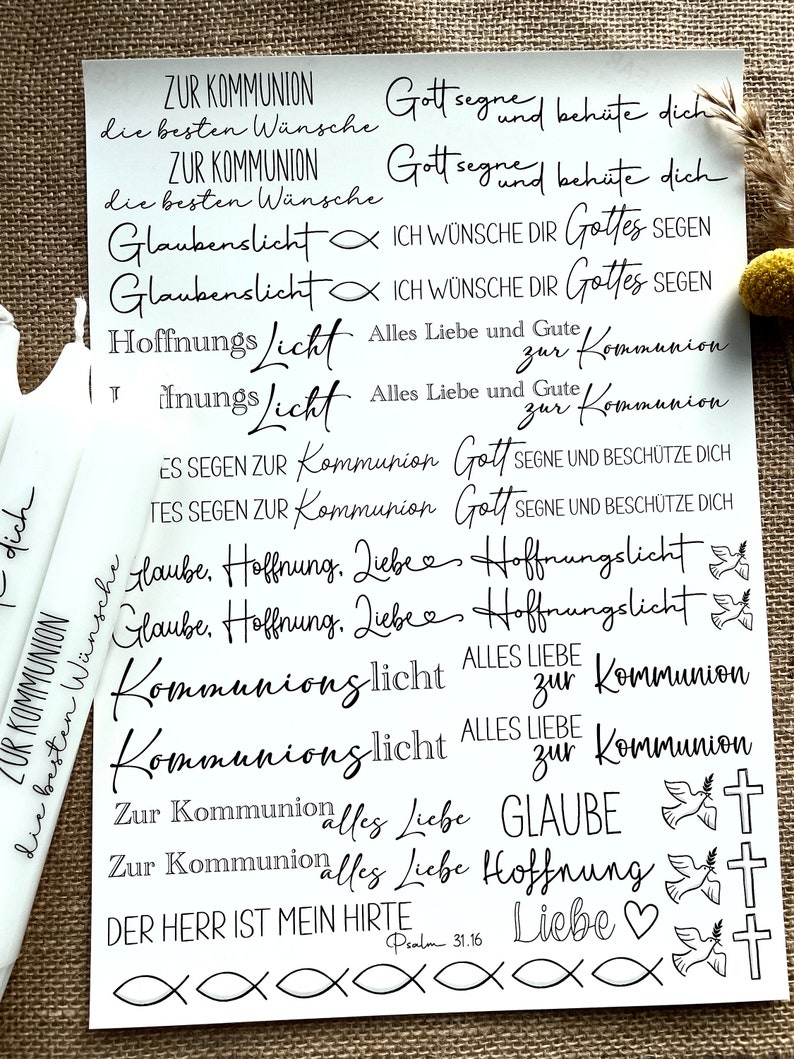 ZUR KOMMUNION
die besten Wünsche
Gott segne
und behüte dich
ZUR KOMMUNION
die besten Wünsche
Gott segne
und behüte dich
Glaubenslicht
ICH WÜNSCHE DIR Gottes SEGEN
Glaubenslicht
ICH WÜNSCHE DIR Gottes SEGEN
Hoffnungs Licht
Alles Liebe und Gute
zur Kommunion
Licht
Alles Liebe und Gute
zur Kommunion
SEGEN ZUR Kommunion
Gott SEGNE UND BESCHÜTZE DICH
SEGEN ZUR Kommunion
Gott SEGNE UND BESCHÜTZE DICH
Glaube, Hoffnung, Liebe
Hoffnungslicht
Glaube, Hoffnung, Liebe
Hoffnungslicht
Kommunionslicht
ALLES LIEBE
zur Kommunion
Kommunionslicht
ALLES LIEBE
zur Kommunion
Zur Kommunion
alles Liebe
GLAUBE
Zur Kommunion
alles Liebe
Hoffnung
DER HERR IST MEIN HIRTE
Psalm 31.16
Liebe
dich
ZUR KOMMUNION
die besten Wünsche